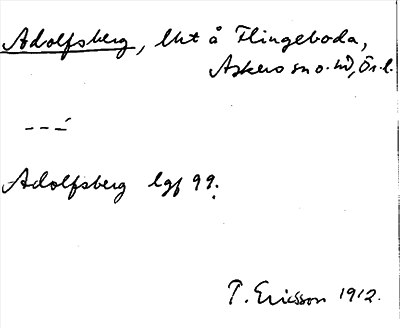 Adolfsberg, lht å Flingeboda,
Askers sn o. hd, Ör. l.
Adolfsberg lgf 99.
T. Ericsson 1912.